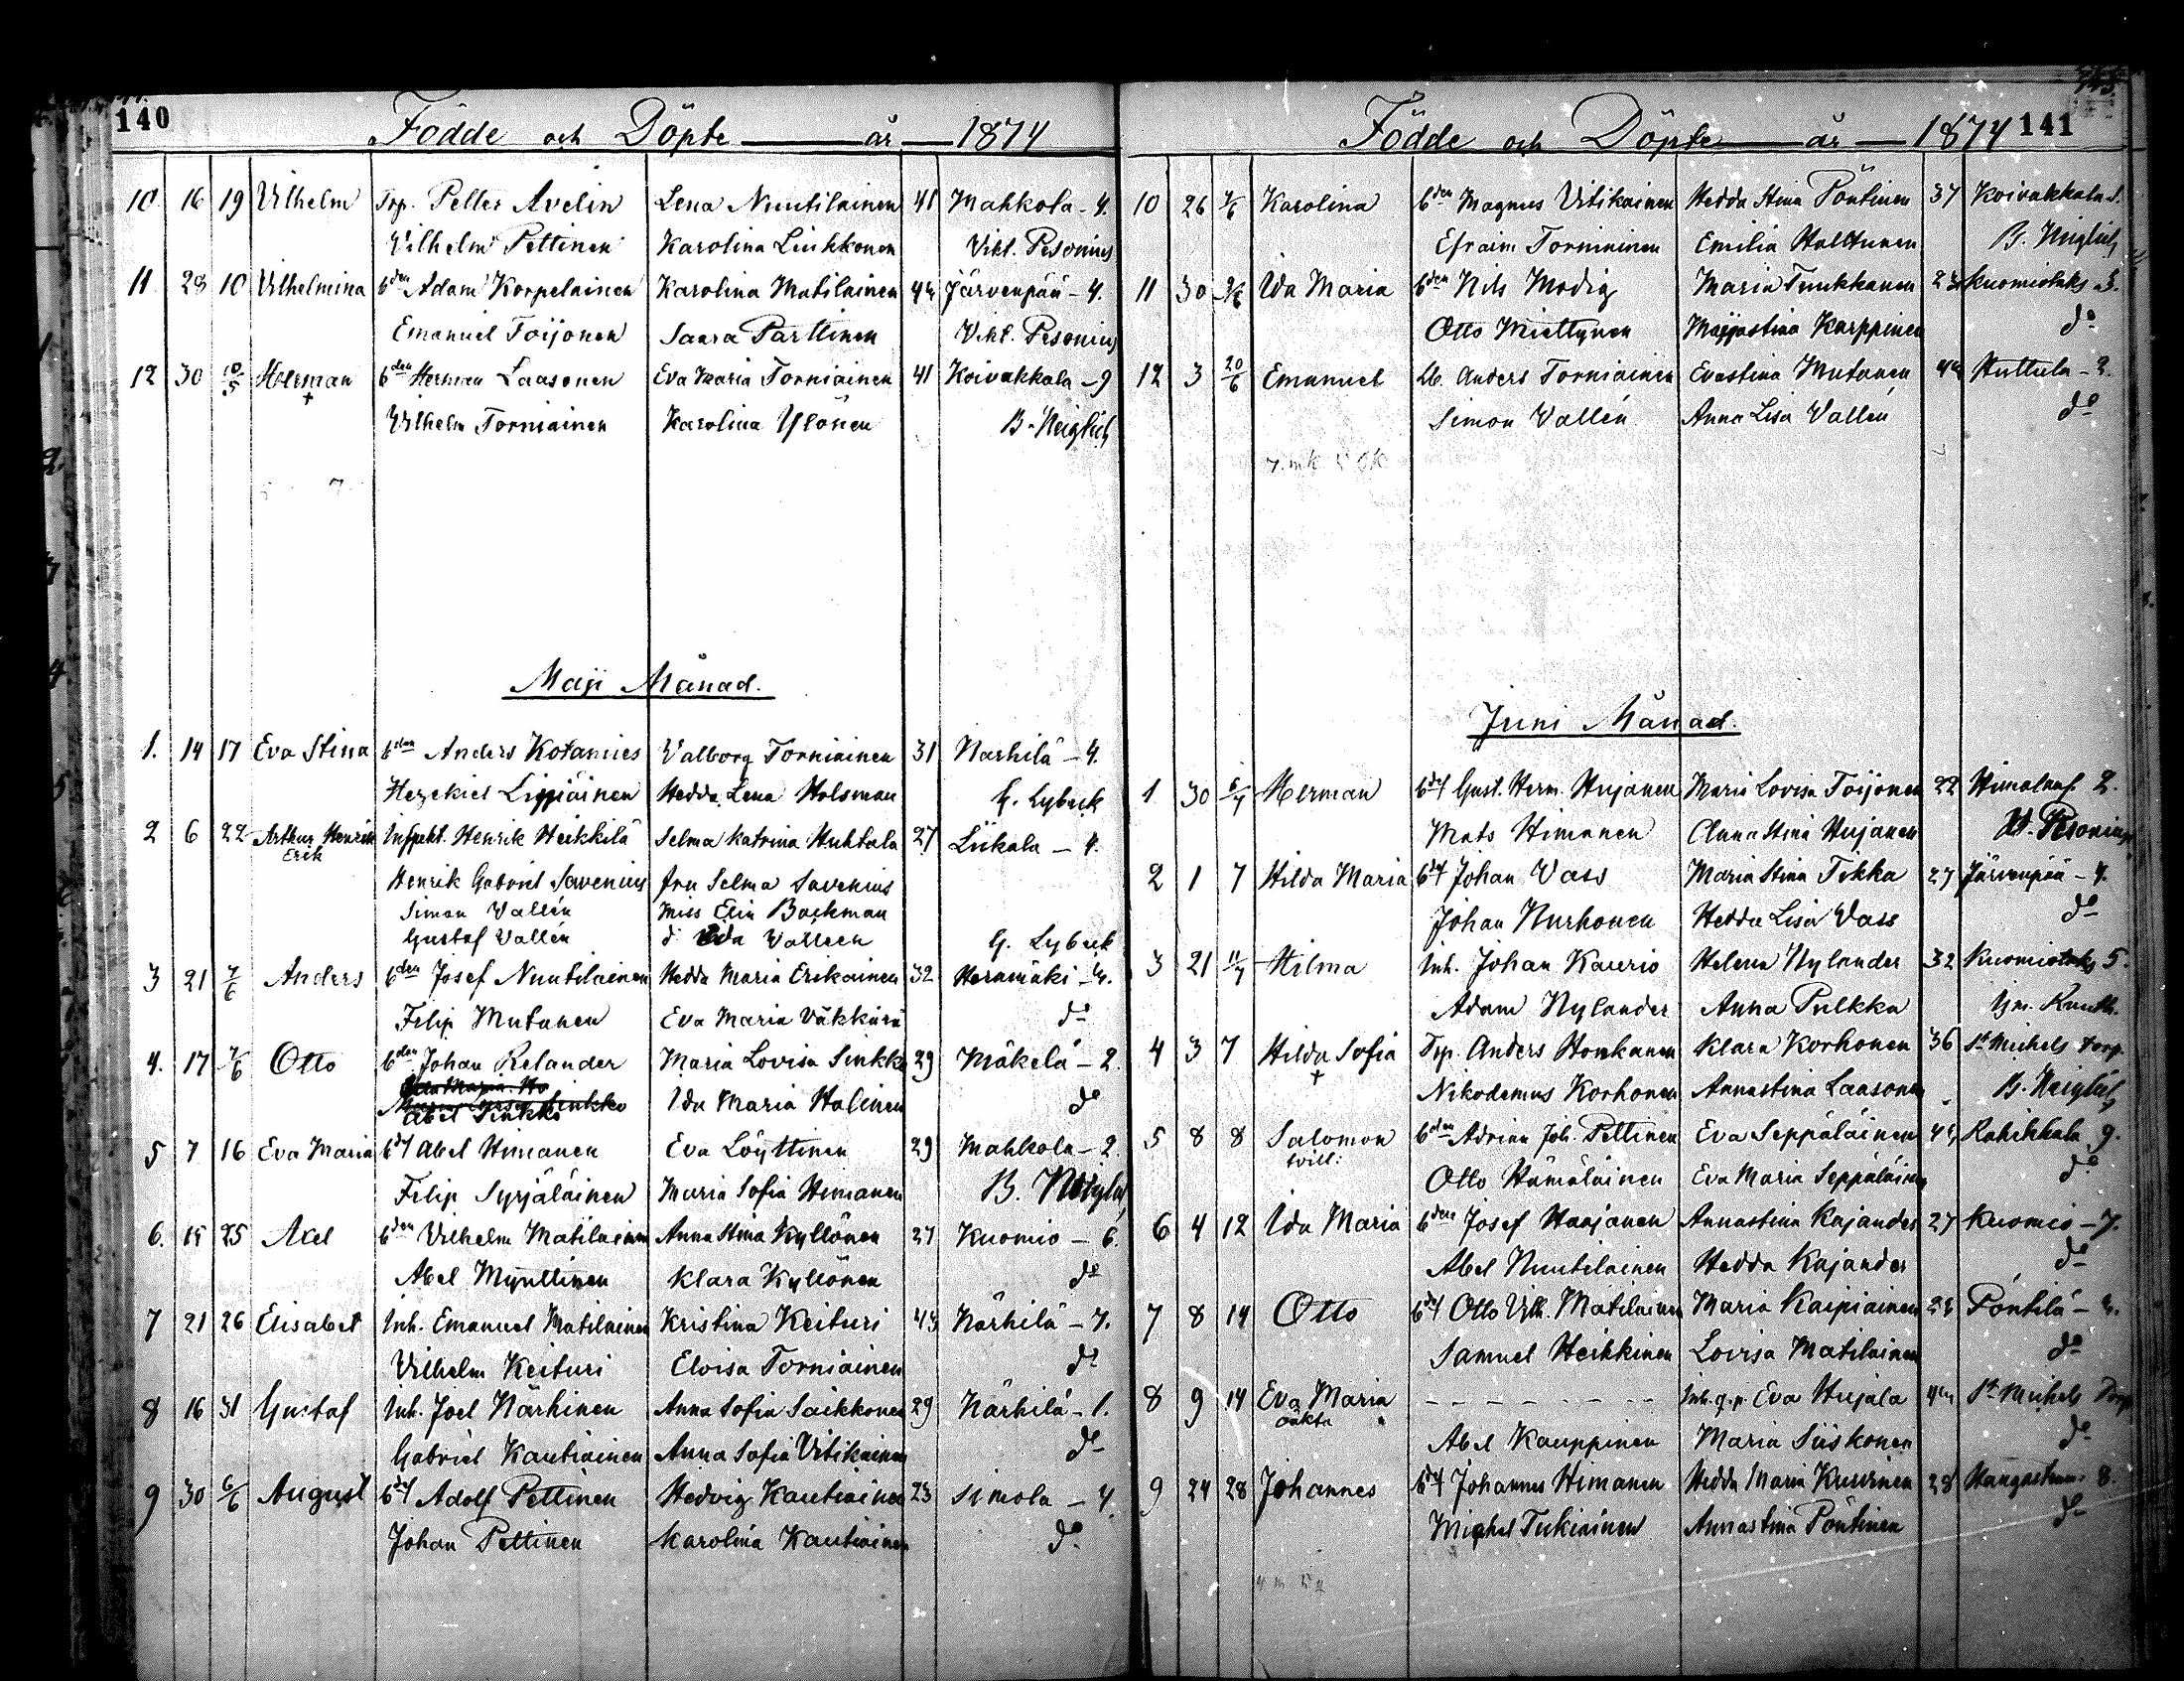 140
Födde och Döpte år 1874
10. 16 19 Vilhelm Trp. Petter Avelin Lena Nuutilainen 41 Mahkola - 4.
Vilhelm Pettinen Karolina Liukkonen Vikt. Pesonius
11 28 10 Vilhelmina bden Adam Korpelainen Karolina Matilainen 44 Järvenpää - 4.
Emanuel Toijonen Saara Parttinen Vikt. Pesonius
12 30 10/5 Herman bden Herman Laasonen Eva Maria Torniainen 41 Koivakkala - 9
+
Vilhelm Torniainen Karolina Ylönen B. Neiglick
Maji Månad.
1. 14 17 Eva Stina bden Anders Kotamies Valborg Torniainen 31 Narhilä - 4.
Hezekiel Lippiäinen Hedda Lena Holsman G. Lybeck
2 6 22 Arthur Henrik Inspekt. Henrik Heikkilä Selma Katrina Huhtala 27 Liikala - 4.
Erik
Henrik Gabriel Savenius fru Selma Savenius
Simon Vallén Miss Elin Backman
Gustaf Vallén d Ida Vallen G. Lybeck
3 21 7/6 Anders bden Josef Nuutilainen Hedda Maria Erikainen 32 Heramäki - 4.
Filip Mutanen Eva Maria Väkkärä do
4. 17 7/6 Otto bden Johan Relander Maria Lovisa Sinkko 29 Mäkelä - 2.
Abel Sinkko Ida Maria Halinen do
5 7 16 Eva Maria bdf Abel Himanen Eva Löyttinen 29 Mahkola - 2.
Filip Syrjäläinen Maria Sofia Himanen B. Neiglick
6. 15 25 Axel bden Vilhelm Matilainen Anna Stina Kyllönen 27 Kuomio - 6.
Abel Mynttinen Klara Kyllönen do
7 21 26 Elisabet Inh. Emanuel Matilainen Kristina Keituri 43 Närhilä - 7.
Vilhelm Keituri Elvisa Torniainen do
8 16 31 Gustaf Inh. Joel Närhinen Anna Sofia Saikkonen 29 Närhilä - 1.
Gabriel Kautiainen Anna Sofia Vitikainen do
9 30 6/6 August bdf Adolf Pettinen Hedvig Kautiainen 23 Simola - 4.
Johan Pettinen Karolina Kautiainen do
Födde och Döpte år 1874 141
10 26 7/6 Karolina bden Magnus Vitikainen Hedda Stina Pöntinen 37 Koivakkala
Efraim Torniainen Emilia Halttunen B. Neiglick
11 30 Ida Maria bden Nils Modig Maria Tuukkanen Kuomiolaks 3.
Otto Miettynen Majjastina Karppinen do
12 3 20/6 Emanuel Lb. Anders Torniainen Evastina Mutanen 44 Huttula - 2.
Simon Vallén Anna Lisa Vallén do
Juni Månad.
1 30 5/7 Herman bdf Gust. Herm. Hujanen Maria Lovisa Toijonen 22 2.
Mats Himanen Anna Stina Hujanen Pesonius
2 1 7 Hilda Maria bdf Johan Vass Maria Stina Tikka 27 Järvenpää - 4.
Johan Nurhonen Hedda Lisa Vass do
3 21 11/7 Hilma Inh. Johan Kaurio Helena Nylander 32 Kuomiolaks 5.
Adam Nylander Anna Pulkka
4 3 7 Hilda Sofia Trp. Anders Honkanen Klara Korhonen 36 St Michels Torp.
+
Nikodemus Korhonen Annastina Laasonen B. Neiglick
5 8 8 Salomon bden Adrian Joh. Pettinen Eva Seppäläinen Rahikkala 9.
tvill:
Otto Hämäläinen Eva Maria Seppäläinen do
6 4 12 Ida Maria bden Josef Haajanen Annastina Kajander 27 Kuomio - 7.
Abel Nuutilainen Hedda Kajander do
7 8 14 Otto bdf Otto Vilh. Matilainen Maria Kaipiainen Pöntilä
Samuel Heikkinen Lovisa Matilainen do
8 9 14 Eva Maria - - - - - - - Inh. q.p. Eva Hujala St Michels Torp
oäkta
Abel Kauppinen Maria Siiskonen do
9 24 28 Johannes bdf Johannes Himanen Hedda Maria Kuurinen 28 8.
Michel Tukiainen Annastina Pöntinen do